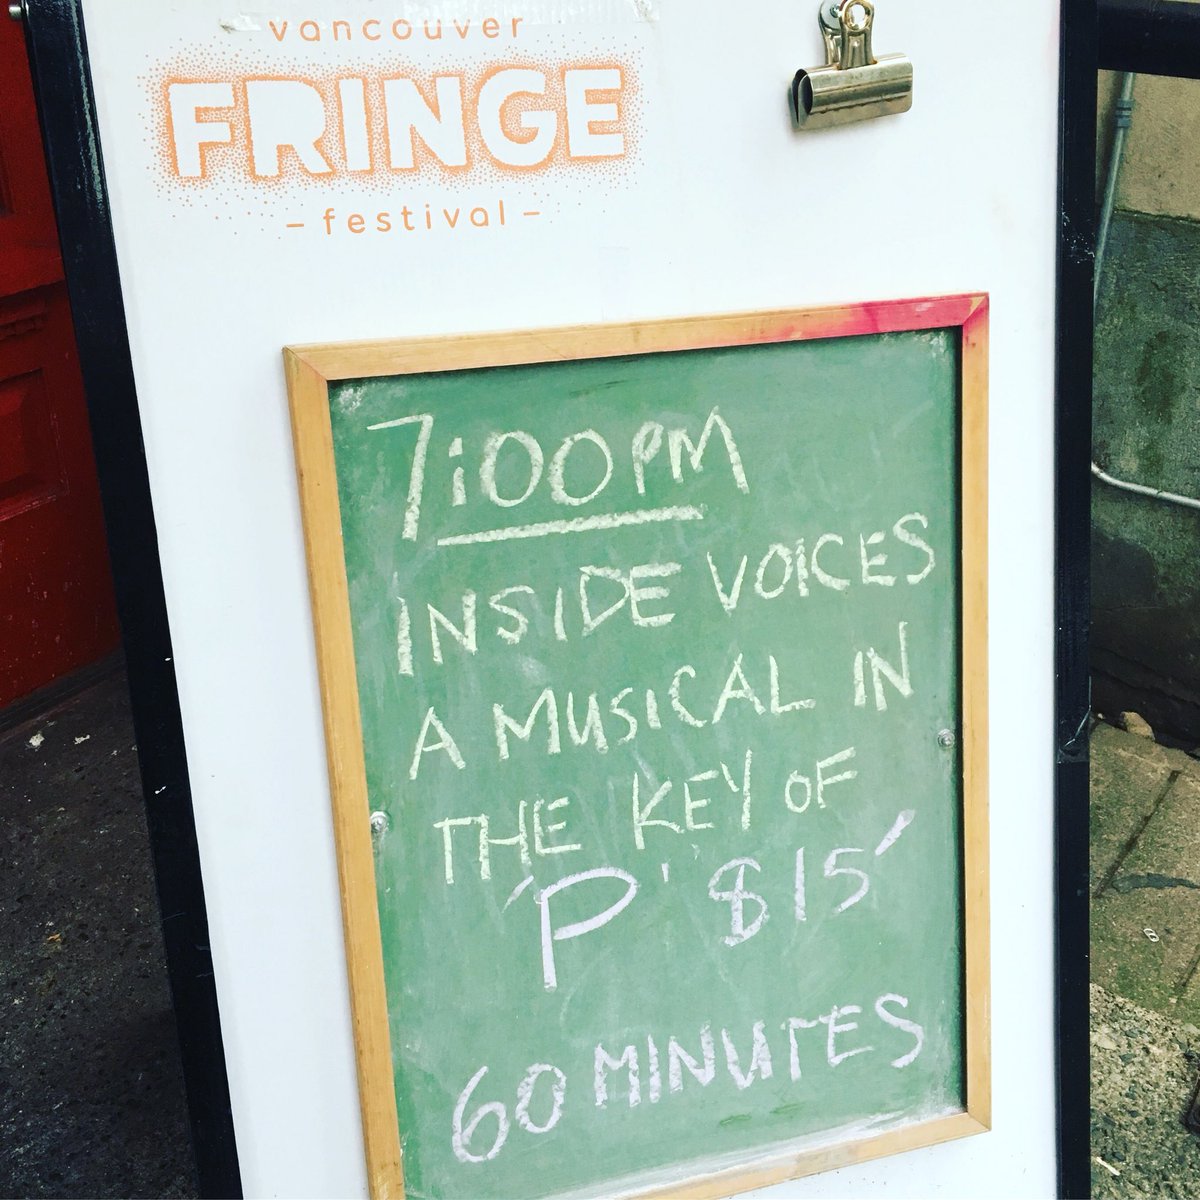 vancouver
FRINGE
- festival -
7:00 PM
INSIDE VOICES
A MUSICAL IN
THE KEY OF
'P' $15
60 MINUTES